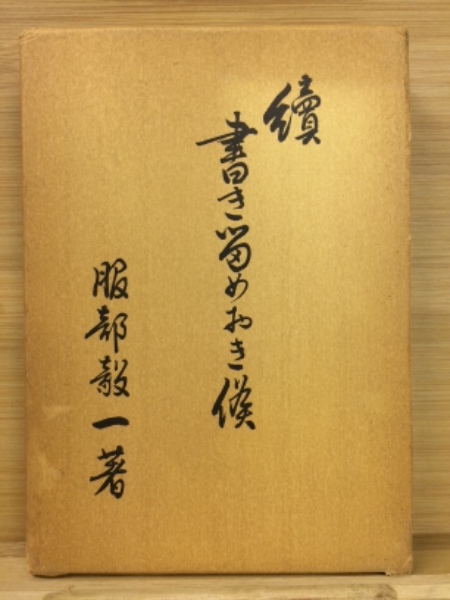 續
書き留めおき候
服部毅一著